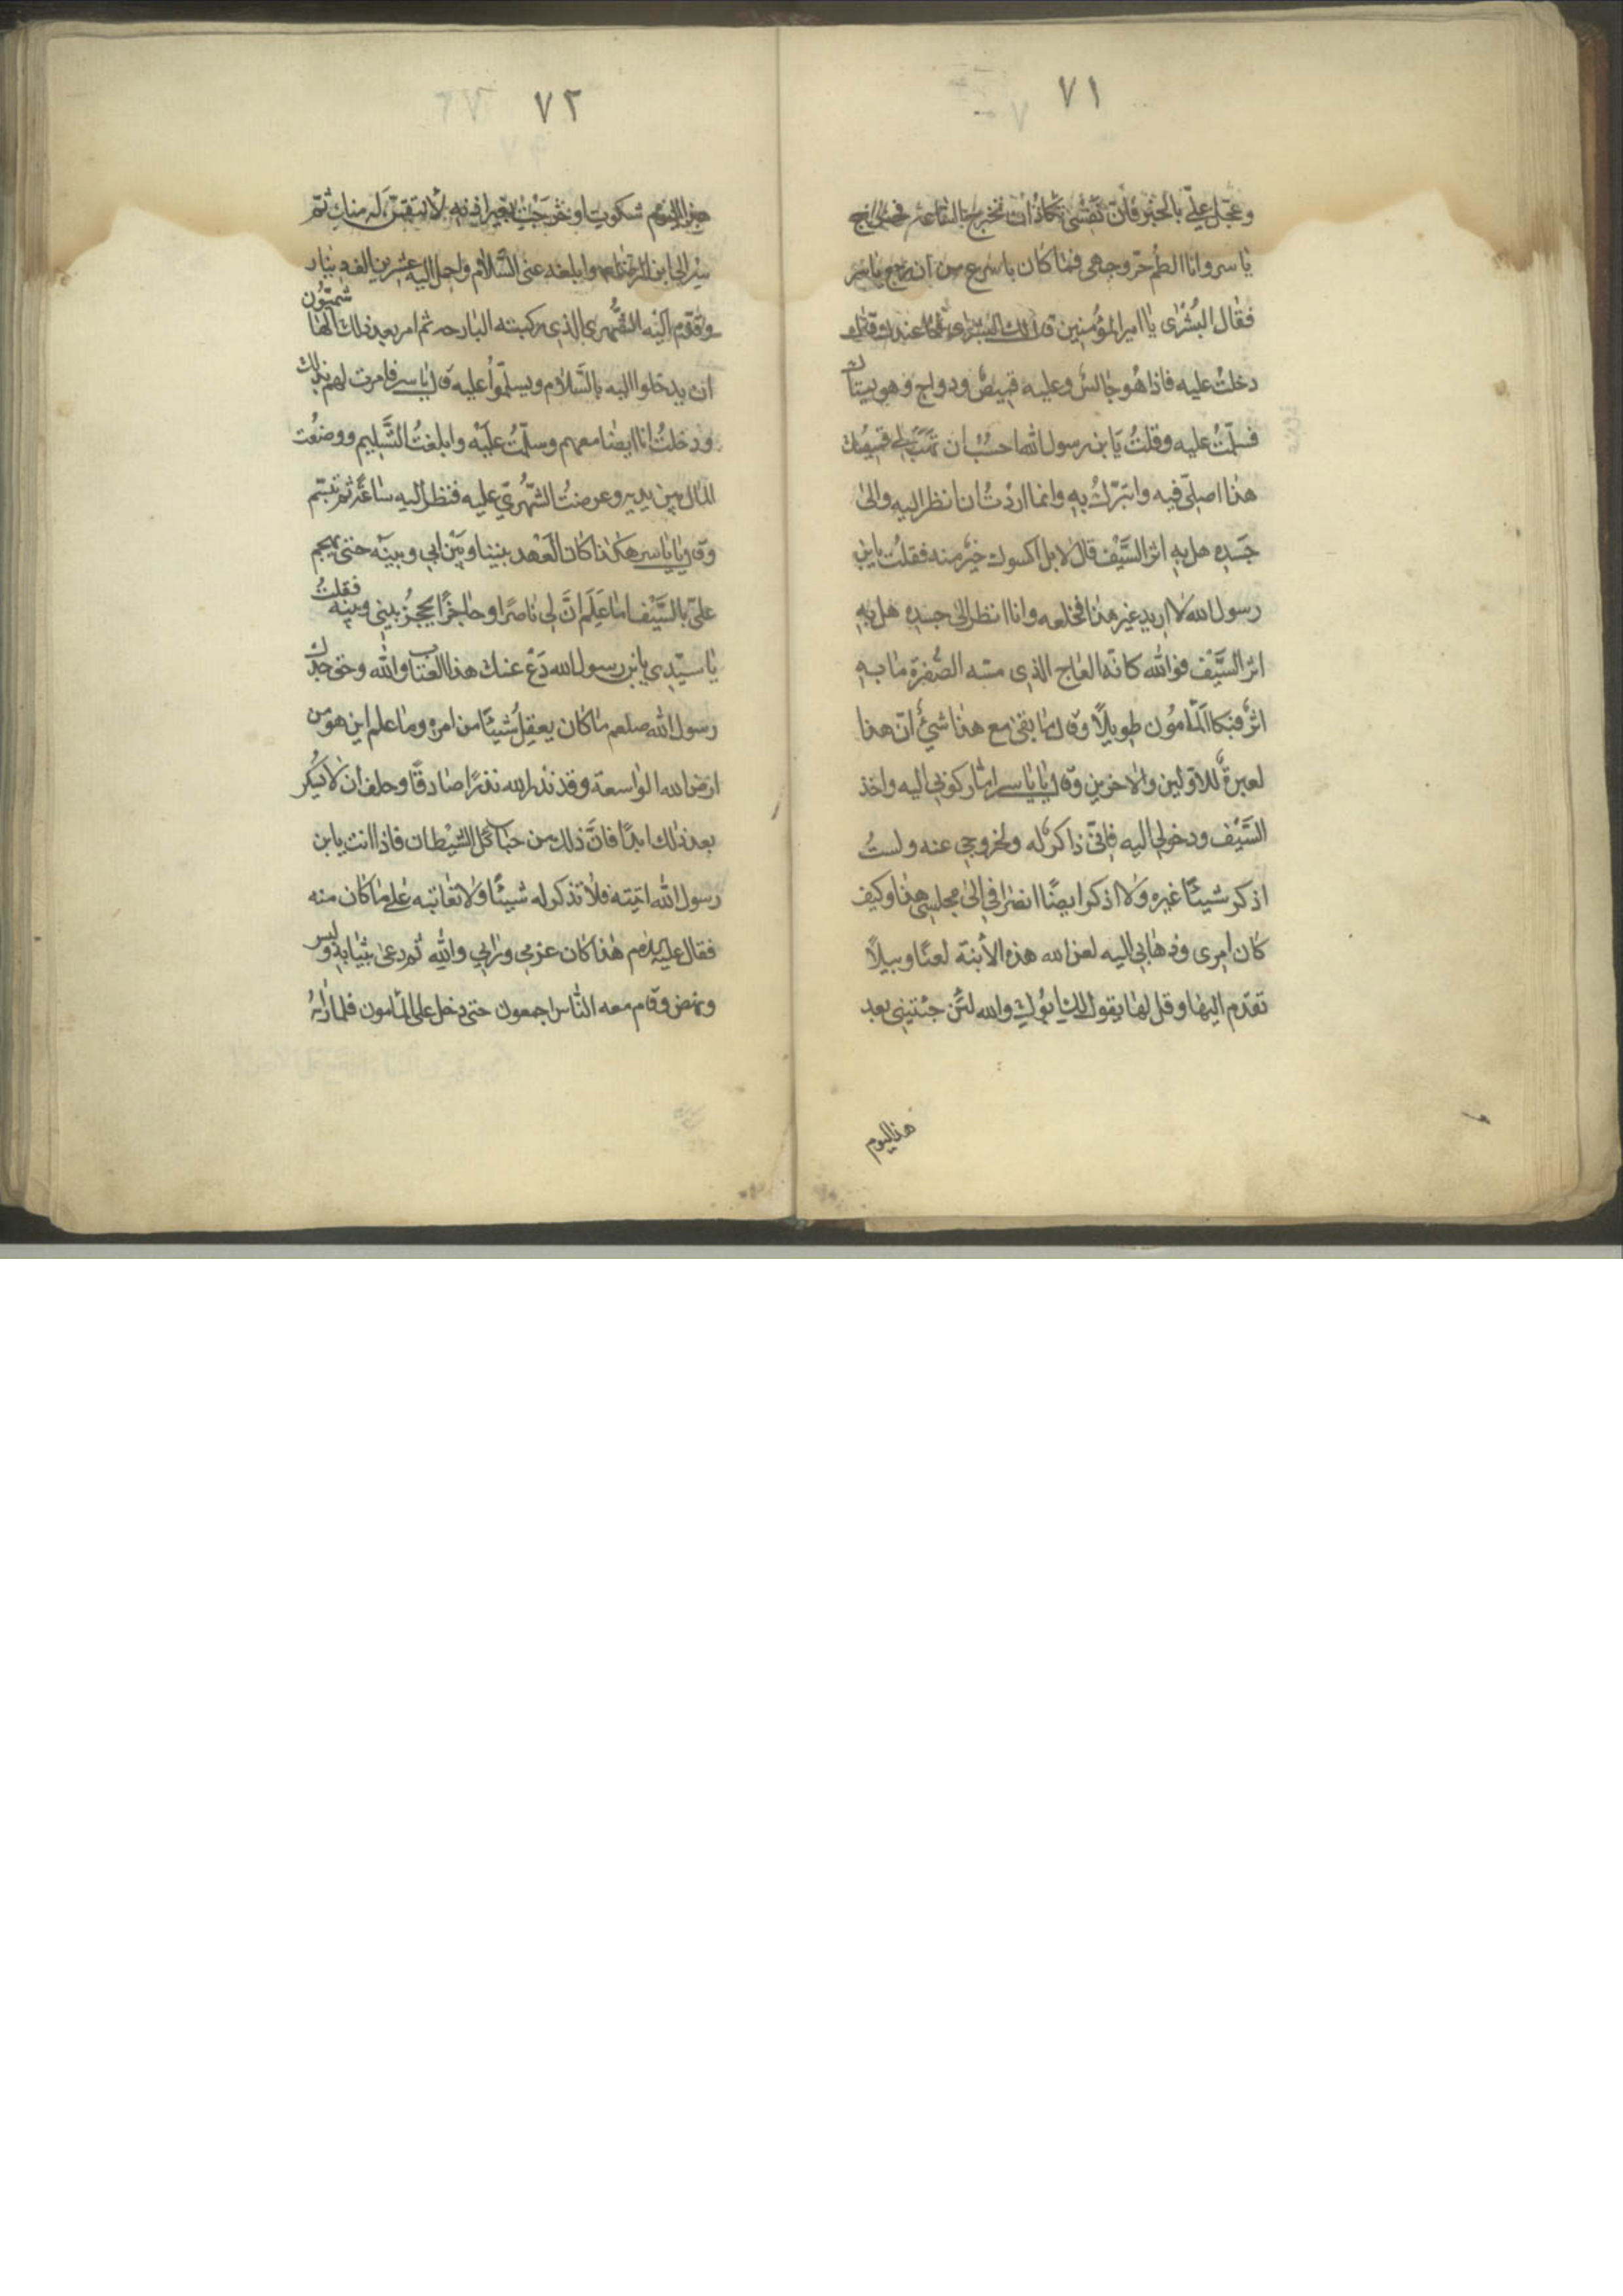 ٧١
وعجّل عليّ بالخبر فان نفسى تكاد ان تخرج السّاعة فخرج
ياسر وانا الطم حرّ وجهى فما كان باسرع من ان رجع ياسر
فقال البُشرٰى يا امير المؤمنين قال لك البشرى فما عندك قال
دخلتُ عليه فاذا هُو جالسٌ وعليه قميصٌ ودواج وهو يستاك
فسلّمتُ عليه وقلتُ يَا بن رسول الله احبُّ ان تهَبَ لى قميصك
هذا اصلّى فيه واتبرّكُ بهِ وانما اردْتُ ان انظر اليه والىٰ
جَسَدِه هل بهِ اثر السَّيْف قال لا بل اكسوك خَيرٌ منه فقلتُ يا بن
رسول الله لا اريد غير هذا فخلعه وانا انظر الىٰ جسده هل بهِ
اثر السَّيْف فوالله كانّه العٰاج الذى مسّه الصُّفرة مٰا به
اثرٌ فبكا المَأمُون طويلًا وقال ما بقى مع هذا شئ انّ هذا
لعبرةٌ للاوّلين والاخرين وقال يٰا ياسر امّا ركوبى اليه واخذ
السَّيْف ودخولى اليه فانّى ذاكرٌ له ولخروجى عنه ولستُ
اذكر شيئًا غيره ولا اذكر ايضًا انصرافى الىٰ مجلسى هذا وكيف
كان امرى وذهابى اليه لعن الله هذه الأبنة لعنًا وبيلاً
تقدّم اليها وقل لها يقول لكِ ابُوكِ والله لئن جئتينى بعد
هذا اليوم
٧٢
هذا اليوم شكوت او خرجت بغير اذنه لانتقمنّ له منكِ ثم
سِر الى ابن الرضا وابلغه عنى السَّلام واحمل اليه عشرين الف دينار
وقدّم اليْه الشَّهرى الذى ركبته البارحه ثم امر بعد ذلك الهاشميّون
ان يدخلوا اليه بالسَّلام ويسلّموُا عليه قال ياسر فامرت لهم بذلك
ودخلتُ انا ايضًا معهم وسلّمتُ عليْه وابلغتُ التَّسليم ووضعْت
المال بين يديه وعرضتُ الشّهرىّ عليه فنظر اليه ساعَةً ثم تبسّم
وقال يٰا ياسر هكذا كان العَهد بيننا وبَيْن ابى وبينَه حتى يهجم
علىّ بالسَّيْف امٰا عَلِم انَّ لى ناصرًا وحاجزًا يحجزُ بينى وبينه فقلتُ
يٰا سيّدى يا بن رسول الله دَعْ عنك هذا العتاب والله وحق جدّك
رسول الله صلعم مٰا كان يعقلُ شيئًا من امره وما علم اين هو من
ارض الله الواسعة وقد نذر لله نذرًا صادقًا وحلف ان لا يُسكر
بعد ذلك ابدًا فانَّ ذلك من حبائل الشيْطان فاذا انت يا بن
رسول الله اتيته فلا تذكر له شيئًا ولا تعاتبه على ما كان منه
فقال عليه السلام هٰذا كان عزمى ورايى والله ثم دعى بثيابه ولبس
ونهض وقام معه النّاس اجمعون حتى دخل على المأمون فلما رآهُ